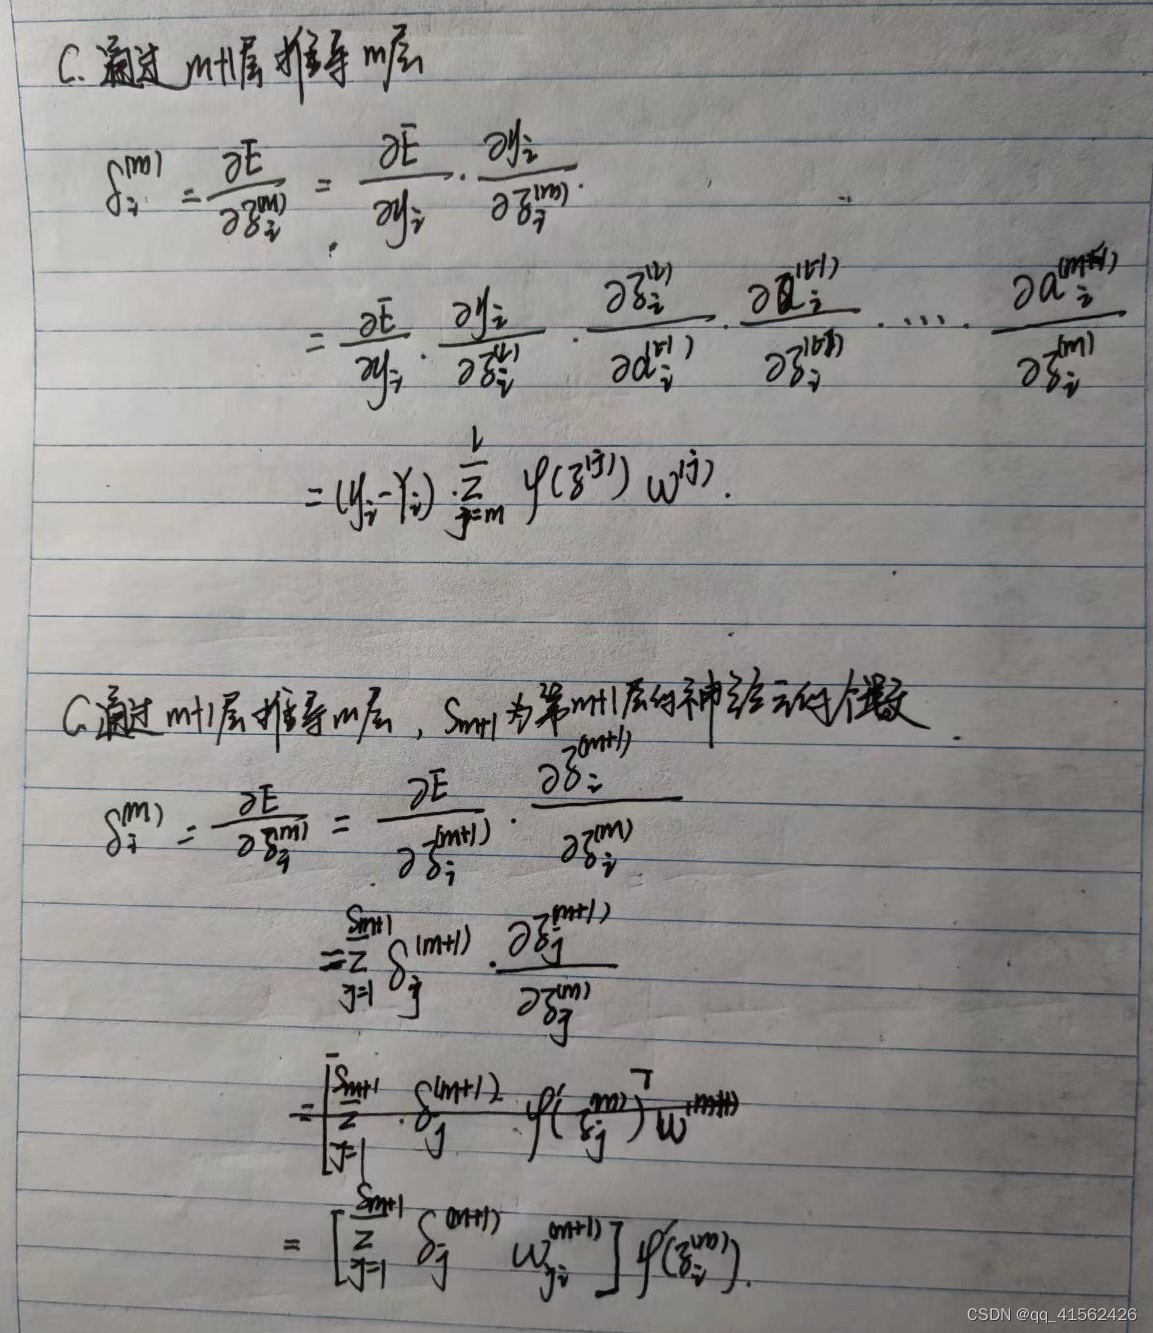 C. 通过 m+1层 推导 m层
δ_i^(m) = ∂E/∂z_i^(m) = ∂E/∂y_i · ∂y_i/∂z_i^(m).
= ∂E/∂y_i · ∂y_i/∂z_i^(l) · ∂z_i^(l)/∂a_i^(l-1) · ∂a_i^(l-1)/∂z_i^(l-1) · .... · ∂a_i^(m+1)/∂z_i^(m)
= (y_i - Y_i) · Σ_{j=m}^{l} φ(z^(j)) w^(j).
C. 通过 m+1层 推导 m层, S_{m+1} 为第m+1层的神经元的个数.
δ_i^(m) = ∂E/∂z_i^(m) = ∂E/∂z_i^(m+1) · ∂z_i^(m+1)/∂z_i^(m)
= Σ_{j=1}^{S_{m+1}} δ_j^(m+1) · ∂z_j^(m+1)/∂z_j^(m)
= [Σ_{j=1}^{S_{m+1}} · δ_j^(m+1) φ'(z_j^(m))^T w^(m+1)
= [Σ_{j=1}^{S_{m+1}} δ_j^(m+1) w_{ji}^(m+1)] φ'(z_i^(m)).
CSDN @qq_41562426